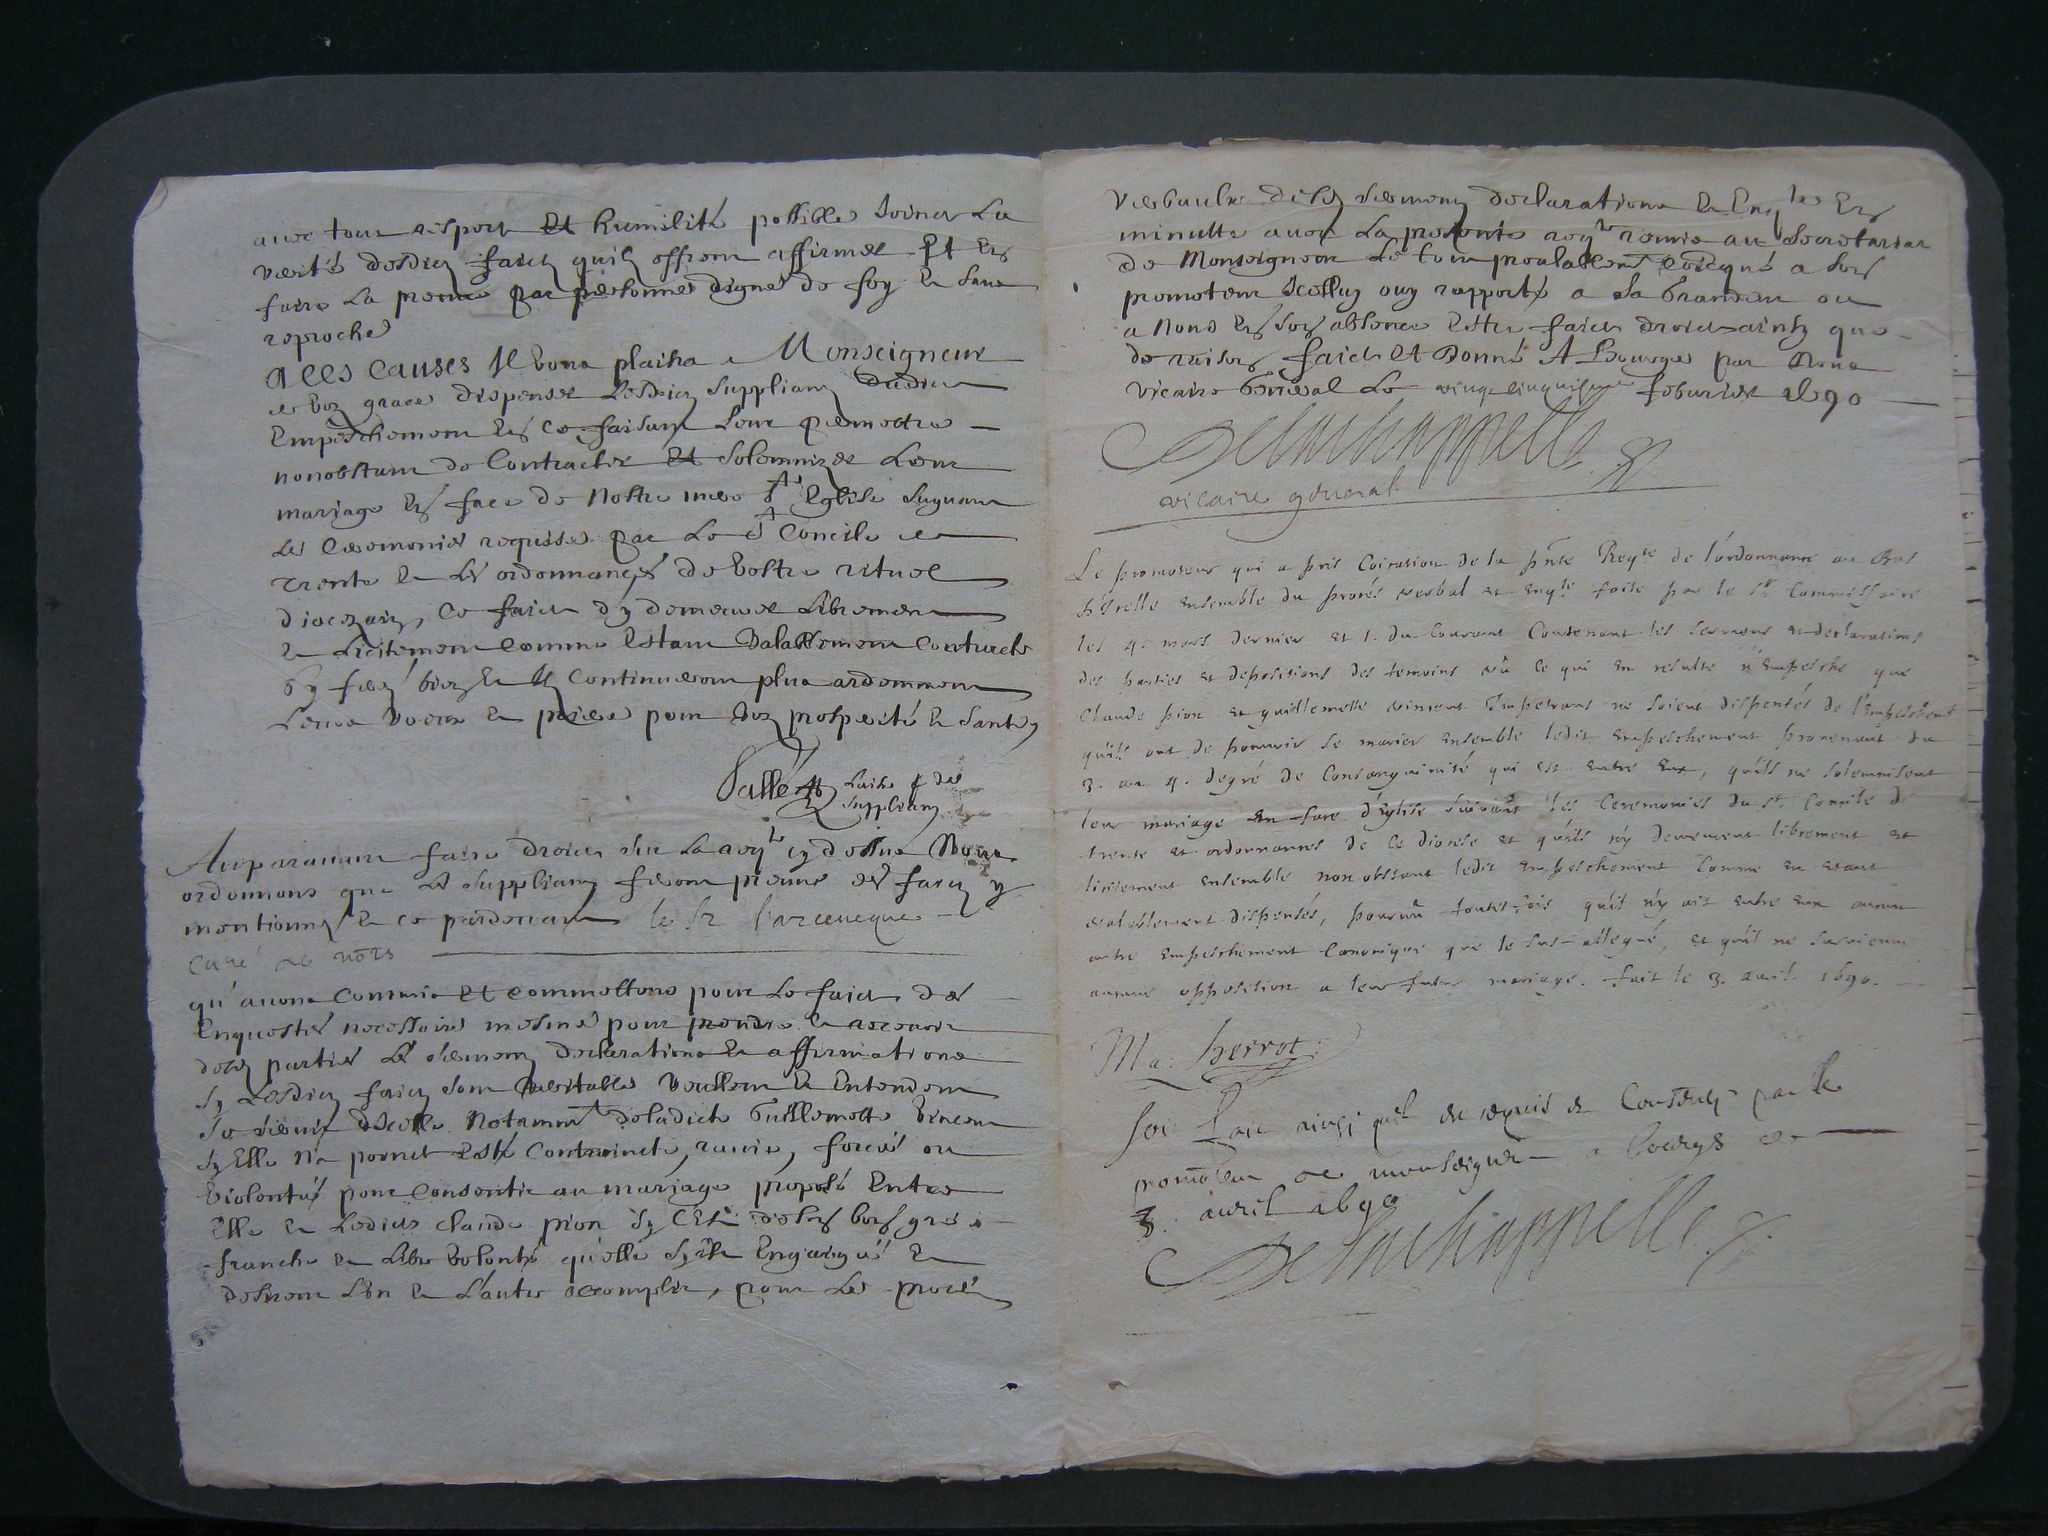 avec tout respect et humilité possible soient La
verité desdicts faicts quils offrent affirmer Et En
faire La preuve par personnes dignes de foy et sans
reproche
A CES CAUSES Il vous plaira Monseigneur
de vos graces dispenser Lesdicts suppliants dudict
Empeschement En ce faisant Leur permettre
nonobstant de Contracter Et solemnizer Leur
mariage En face de Nostre mere Ste Eglise suyvant
Les Ceremonies requises par Le St Concile de
trente et Les ordonnances de vostre rituel
diocezain, ce faict d'y demeurer Librement
et Licitement comme Estant valablement Contracté
sy ferez bien et Ils Continueront plus ardemment
Leurs voeux et prieres pour vos prosperité et santé
Pallé des
suppliants
Auparavant faire droict sur La reqte cy dessus Nous
ordonnons que Les suppliants feront preuve des faicts y
mentionnés et ce pardevant le sr l'arceveque
curé de nots
qu'avons Commis Et commettons pour Le faict des
Enquestes necessaires mesme pour prendre et recevoir
desd parties Les sermens declarations et affirmations
sy Lesdicts faicts sont veritables veullent et Entendent
se servir d'Icelle Notamment deladicte Guillemette Vincent
sy Elle n'a point Esté Contraincte, ravie, forcée ou
violentée pour Consentir au mariage proposé Entre
Elle et Ledict claude pion sy C'Est de son bon gré
franche et Libre volonté qu'elle s'y est Engaigée et
desirent L'un et L'autre accomplir, pour Les procès
verbaulx desd sermens declarations et Enqtes En
minutte avec La presente reqte remis au Secretariat
de Monseigneur Le tout prealablement coicqué a son
promoteur Icelluy ouy rapporté a sa Grandeur ou
a Nous En son absence Estre faict droict ainsy que
de raison faict Et Donné A Bourges par Nous
vicaire General Le vingt cinquiesme febvrier 1690
Delachappelle
vicaire general
Le promoteur qui a pris Coication de la pnte Reqte de l'ordonnance au bas
d'Icelle Ensemble du procés verbal et Enqte faite par le sr Commissaire
les 9. mars dernier et 1. du Courant Contenant les sermens et declarations
des parties et depositions des temoins vû ce qui En resulte n'Empesche que
Claude pion et guillemette vincent Impetrans ne soient dispensés de l'Empeschent
qu'ils ont de pouvoir se marier Ensemble ledit Empeschement provenant du
3. au 4. degré de Consanguinité qui est Entre Eux, qu'ils ne solemnisent
leur mariage En face d'Eglise suivant les Ceremonies du st Concile de
trente et ordonnances de Ce diocese et qu'ils n'y demeurent librement et
licitement Ensemble non obstant ledit Empeschement Comme En Etant
valablement dispensés, pourvû toutefois qu'il n'y ait Entre Eux aucun
autre Empeschement Canonique que le sus-allegué, et qu'il ne survienne
aucune opposition a leur futur mariage. fait le 3. avril 1690.
Ma: herrot:
soit faict ainsi quil est requis et Consenty par le
promoteur de monseigneur a bourges le
3. avril 1690
Delachappelle